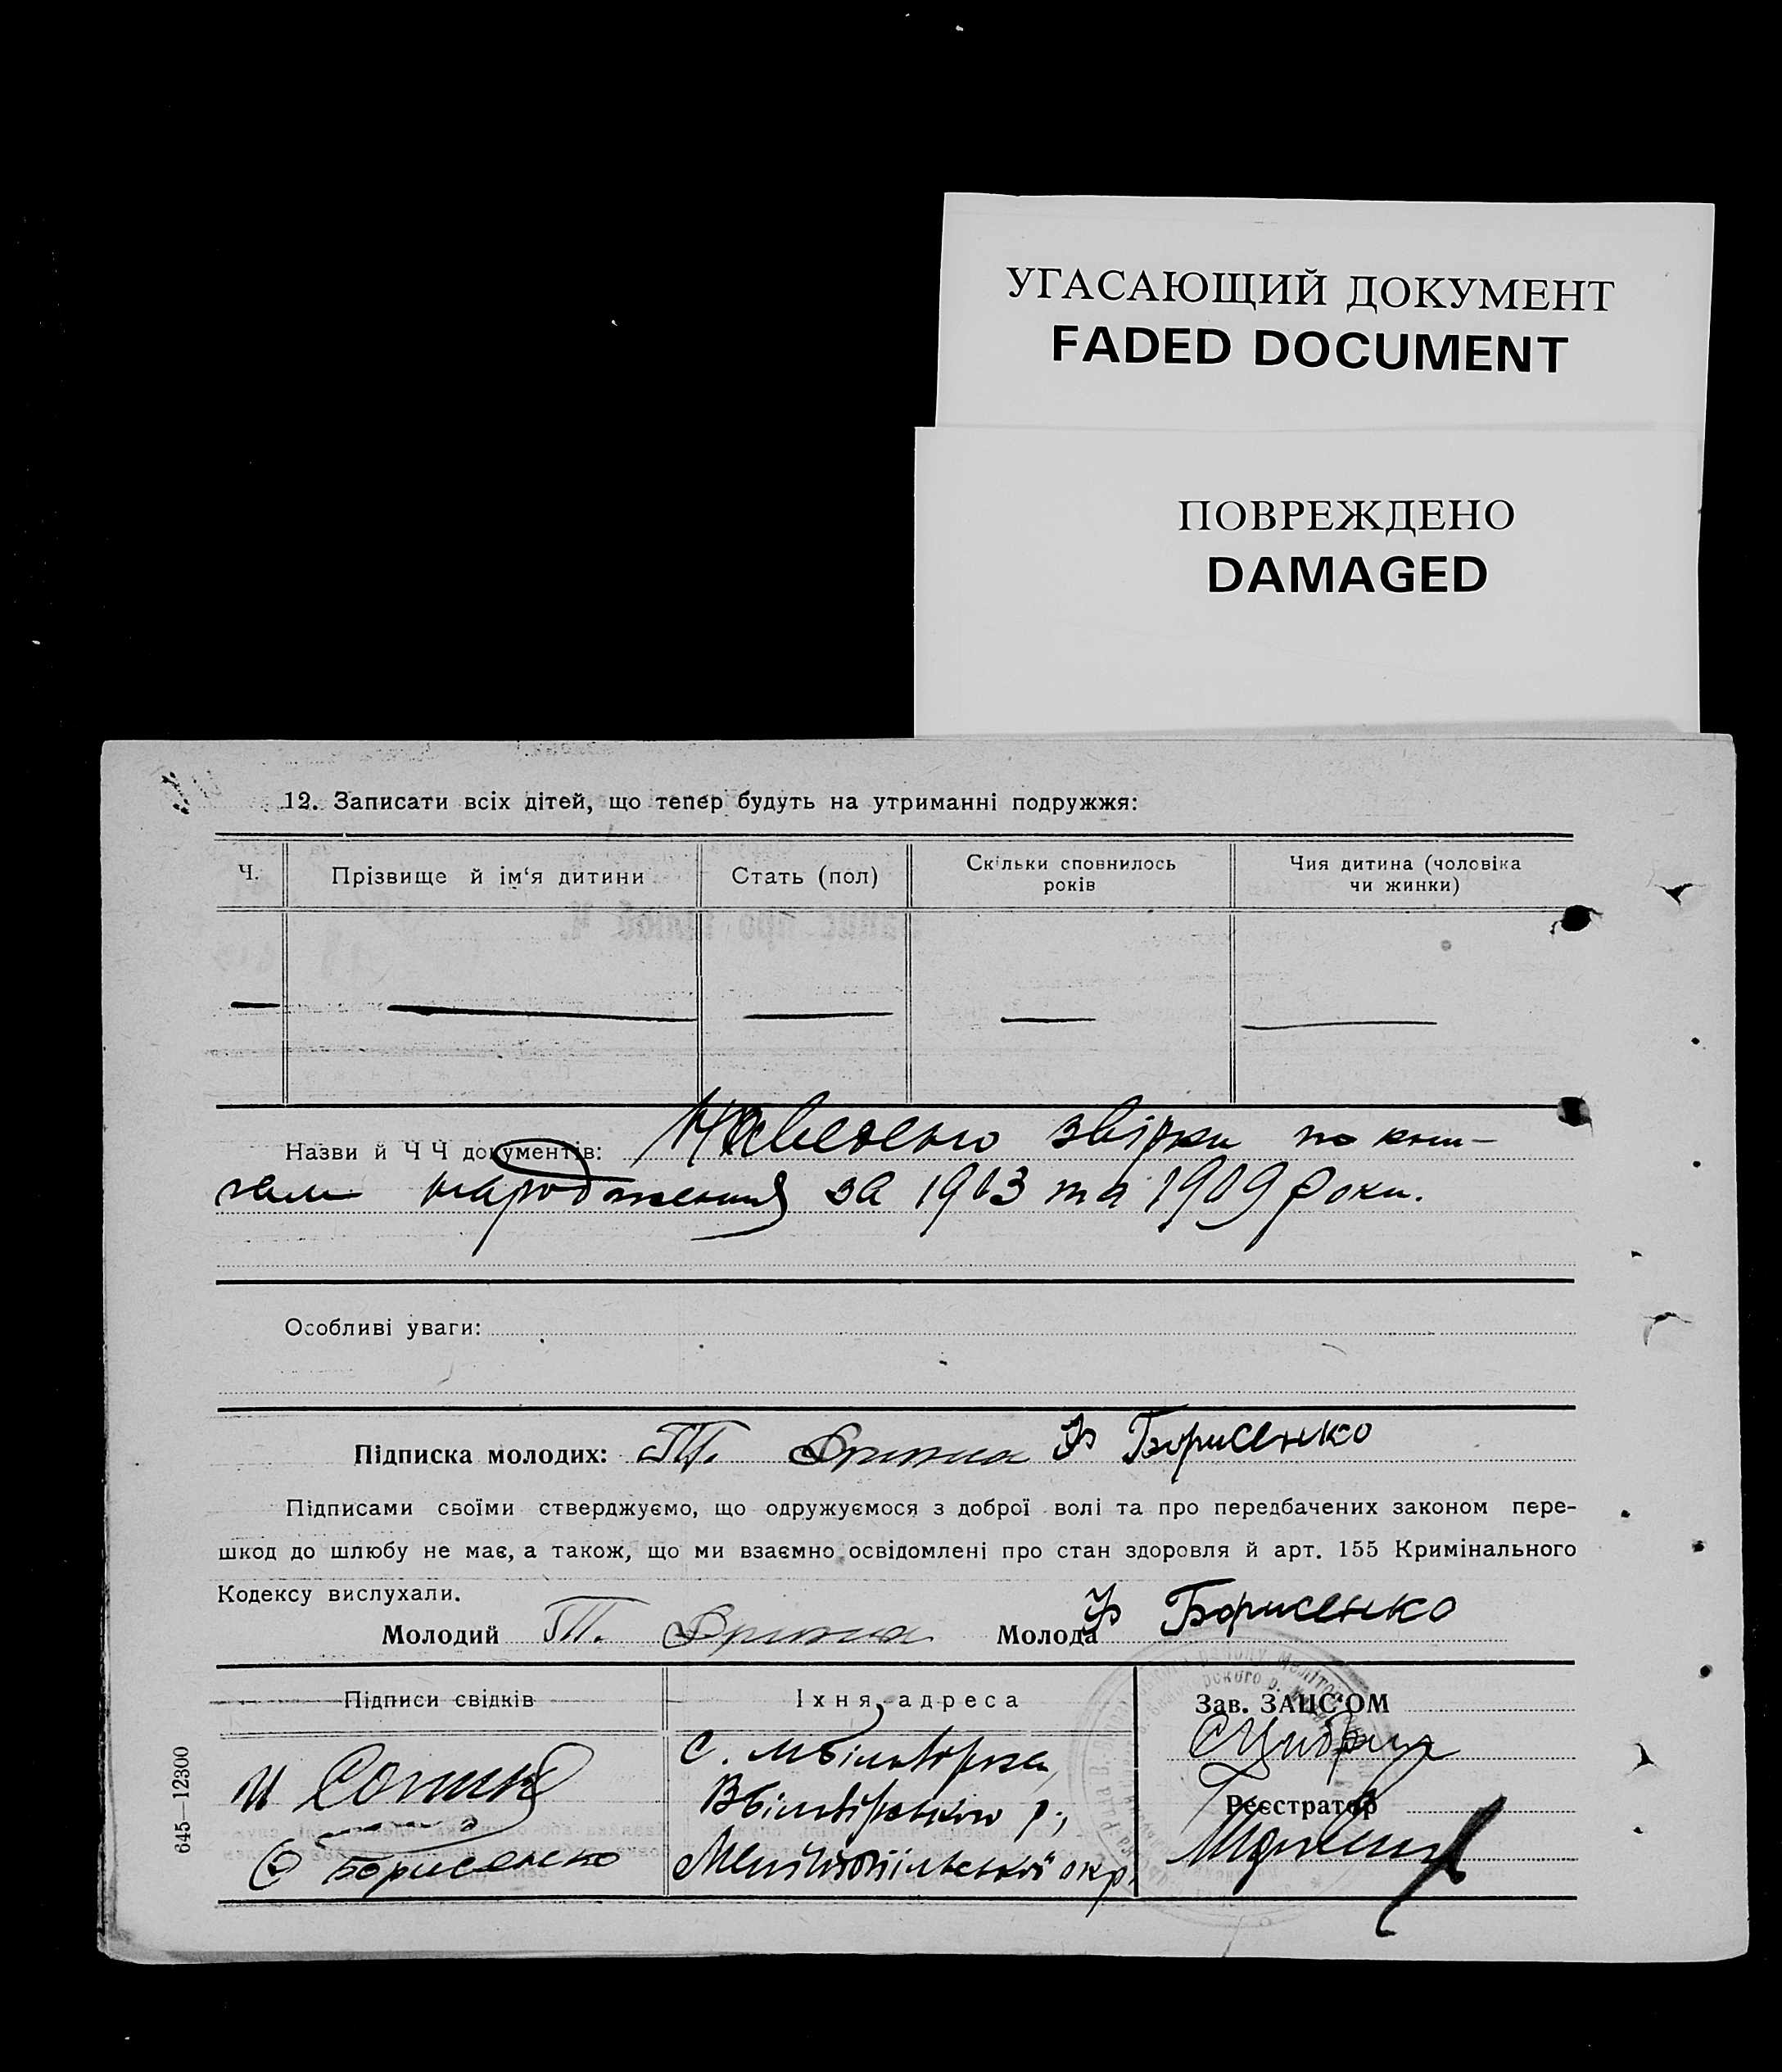 УГАСАЮЩИЙ ДОКУМЕНТ
FADED DOCUMENT
ПОВРЕЖДЕНО
DAMAGED
12. Записати всіх дітей, що тепер будуть на утриманні подружжя:
Ч.
Прізвище й ім‘я дитини
Стать (пол)
Скільки сповнилось
років
Чия дитина (чоловіка
чи жинки)
Назви й Ч Ч документів: Наведено звірки по кни-
гам народження за 1903 та 1909 роки.
Особливі уваги:
Підписка молодих: Т. Ф Борисенко
Підписами своїми стверджуємо, що одружуємося з доброї волі та про передбачених законом пере-
шкод до шлюбу не має, а також, що ми взаємно освідомлені про стан здоровля й арт. 155 Кримінального
Кодексу вислухали.
Молодий Т. Молода Ф Борисенко
Підписи свідків
Їхня адреса
Зав. ЗАЦС‘ОМ
И
С Борисенко
с. М Білозірка,
В Білозірського р.,
Мелітопільської окр.
Реєстратор
645—12300